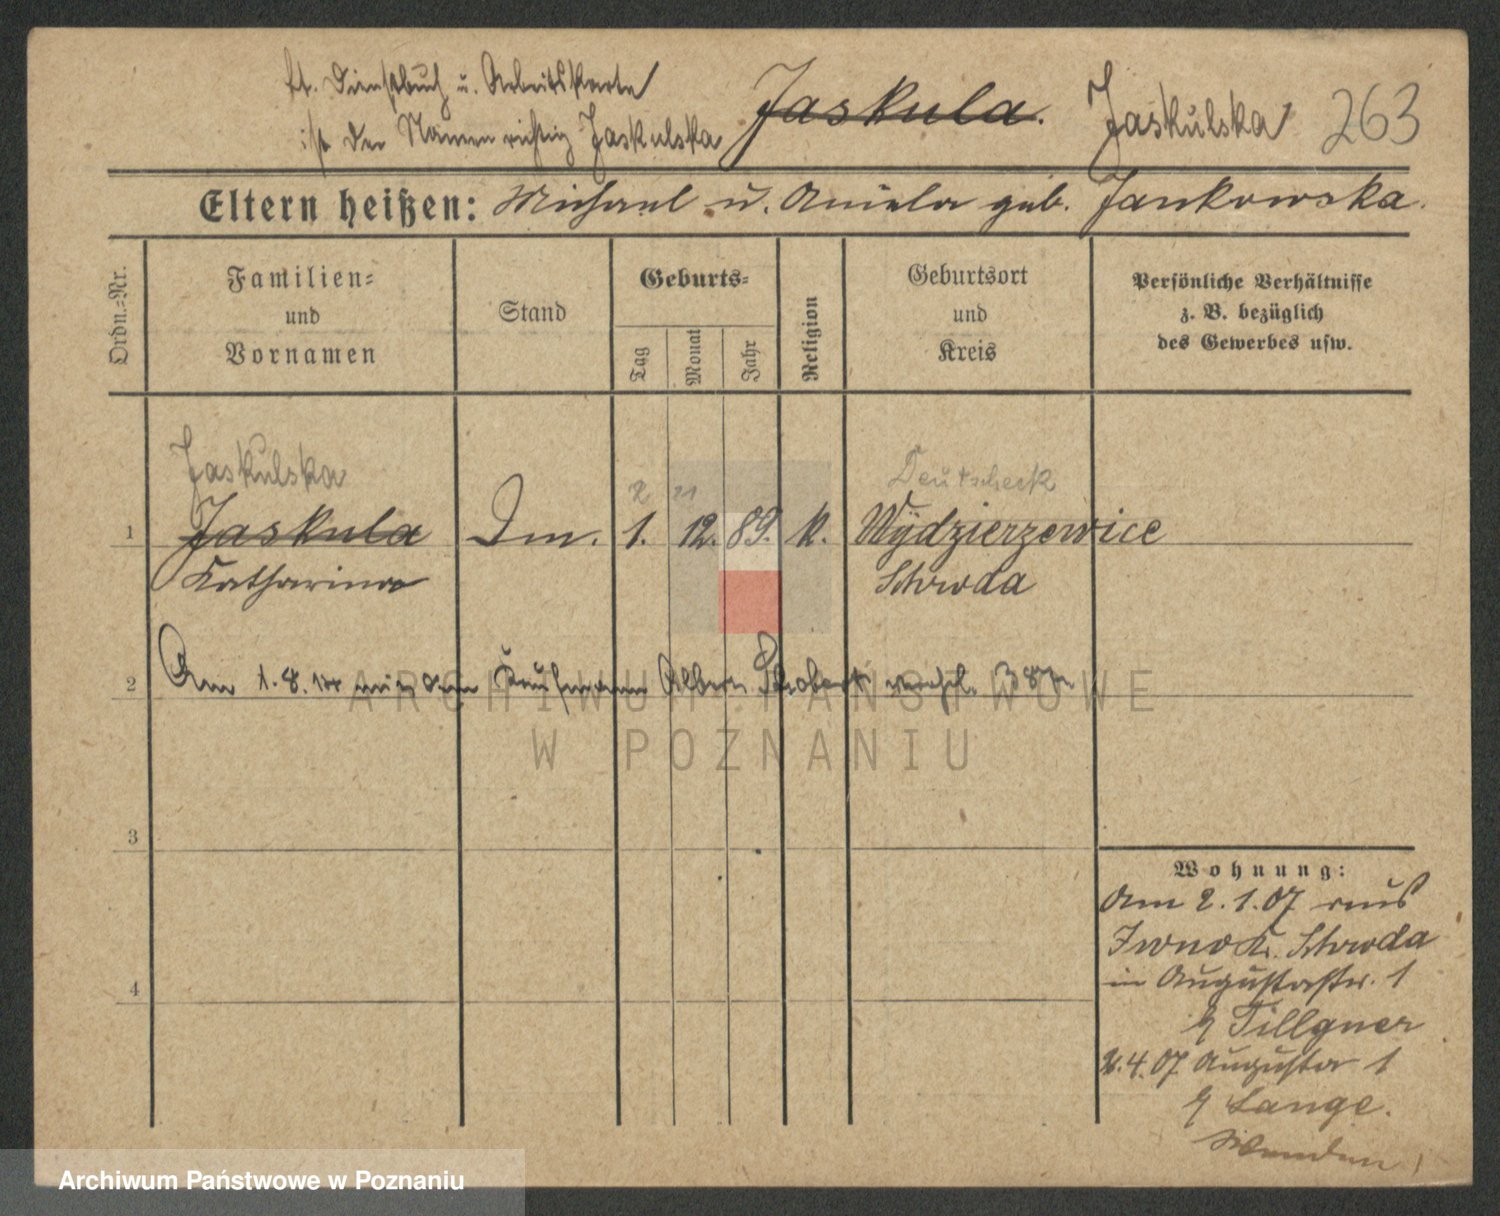 lt. Dienstbuch u. Arbeitskarte
ist der Namen richtig Jaskulska
Jaskula. Jaskulska 263
Eltern heißen: Michael u. Aniela geb. Jankowska.
Ordn.-Nr.
Familien-
und
Vornamen
Stand
Geburts-
Tag
Monat
Jahr
Religion
Geburtsort
und
Kreis
Persönliche Verhältnisse
z. B. bezüglich
des Gewerbes usw.
Jaskulska
Deutscheck
2 11
1 Jaskula Dm. 1. 12. 89. k. Wydzierzewice
Katharina Schroda
2 Am 1.8. mit dem Kaufmann verehel.
3
4
Wohnung:
Am 2.1.07 aus
Iwno Kr. Schroda
in Augustastr. 1
b/ Tillgner
2.4.07 Augusta 1
b/ Lange.
Wenden!
ARCHIWUM PAŃSTWOWE
W POZNANIU
Archiwum Państwowe w Poznaniu